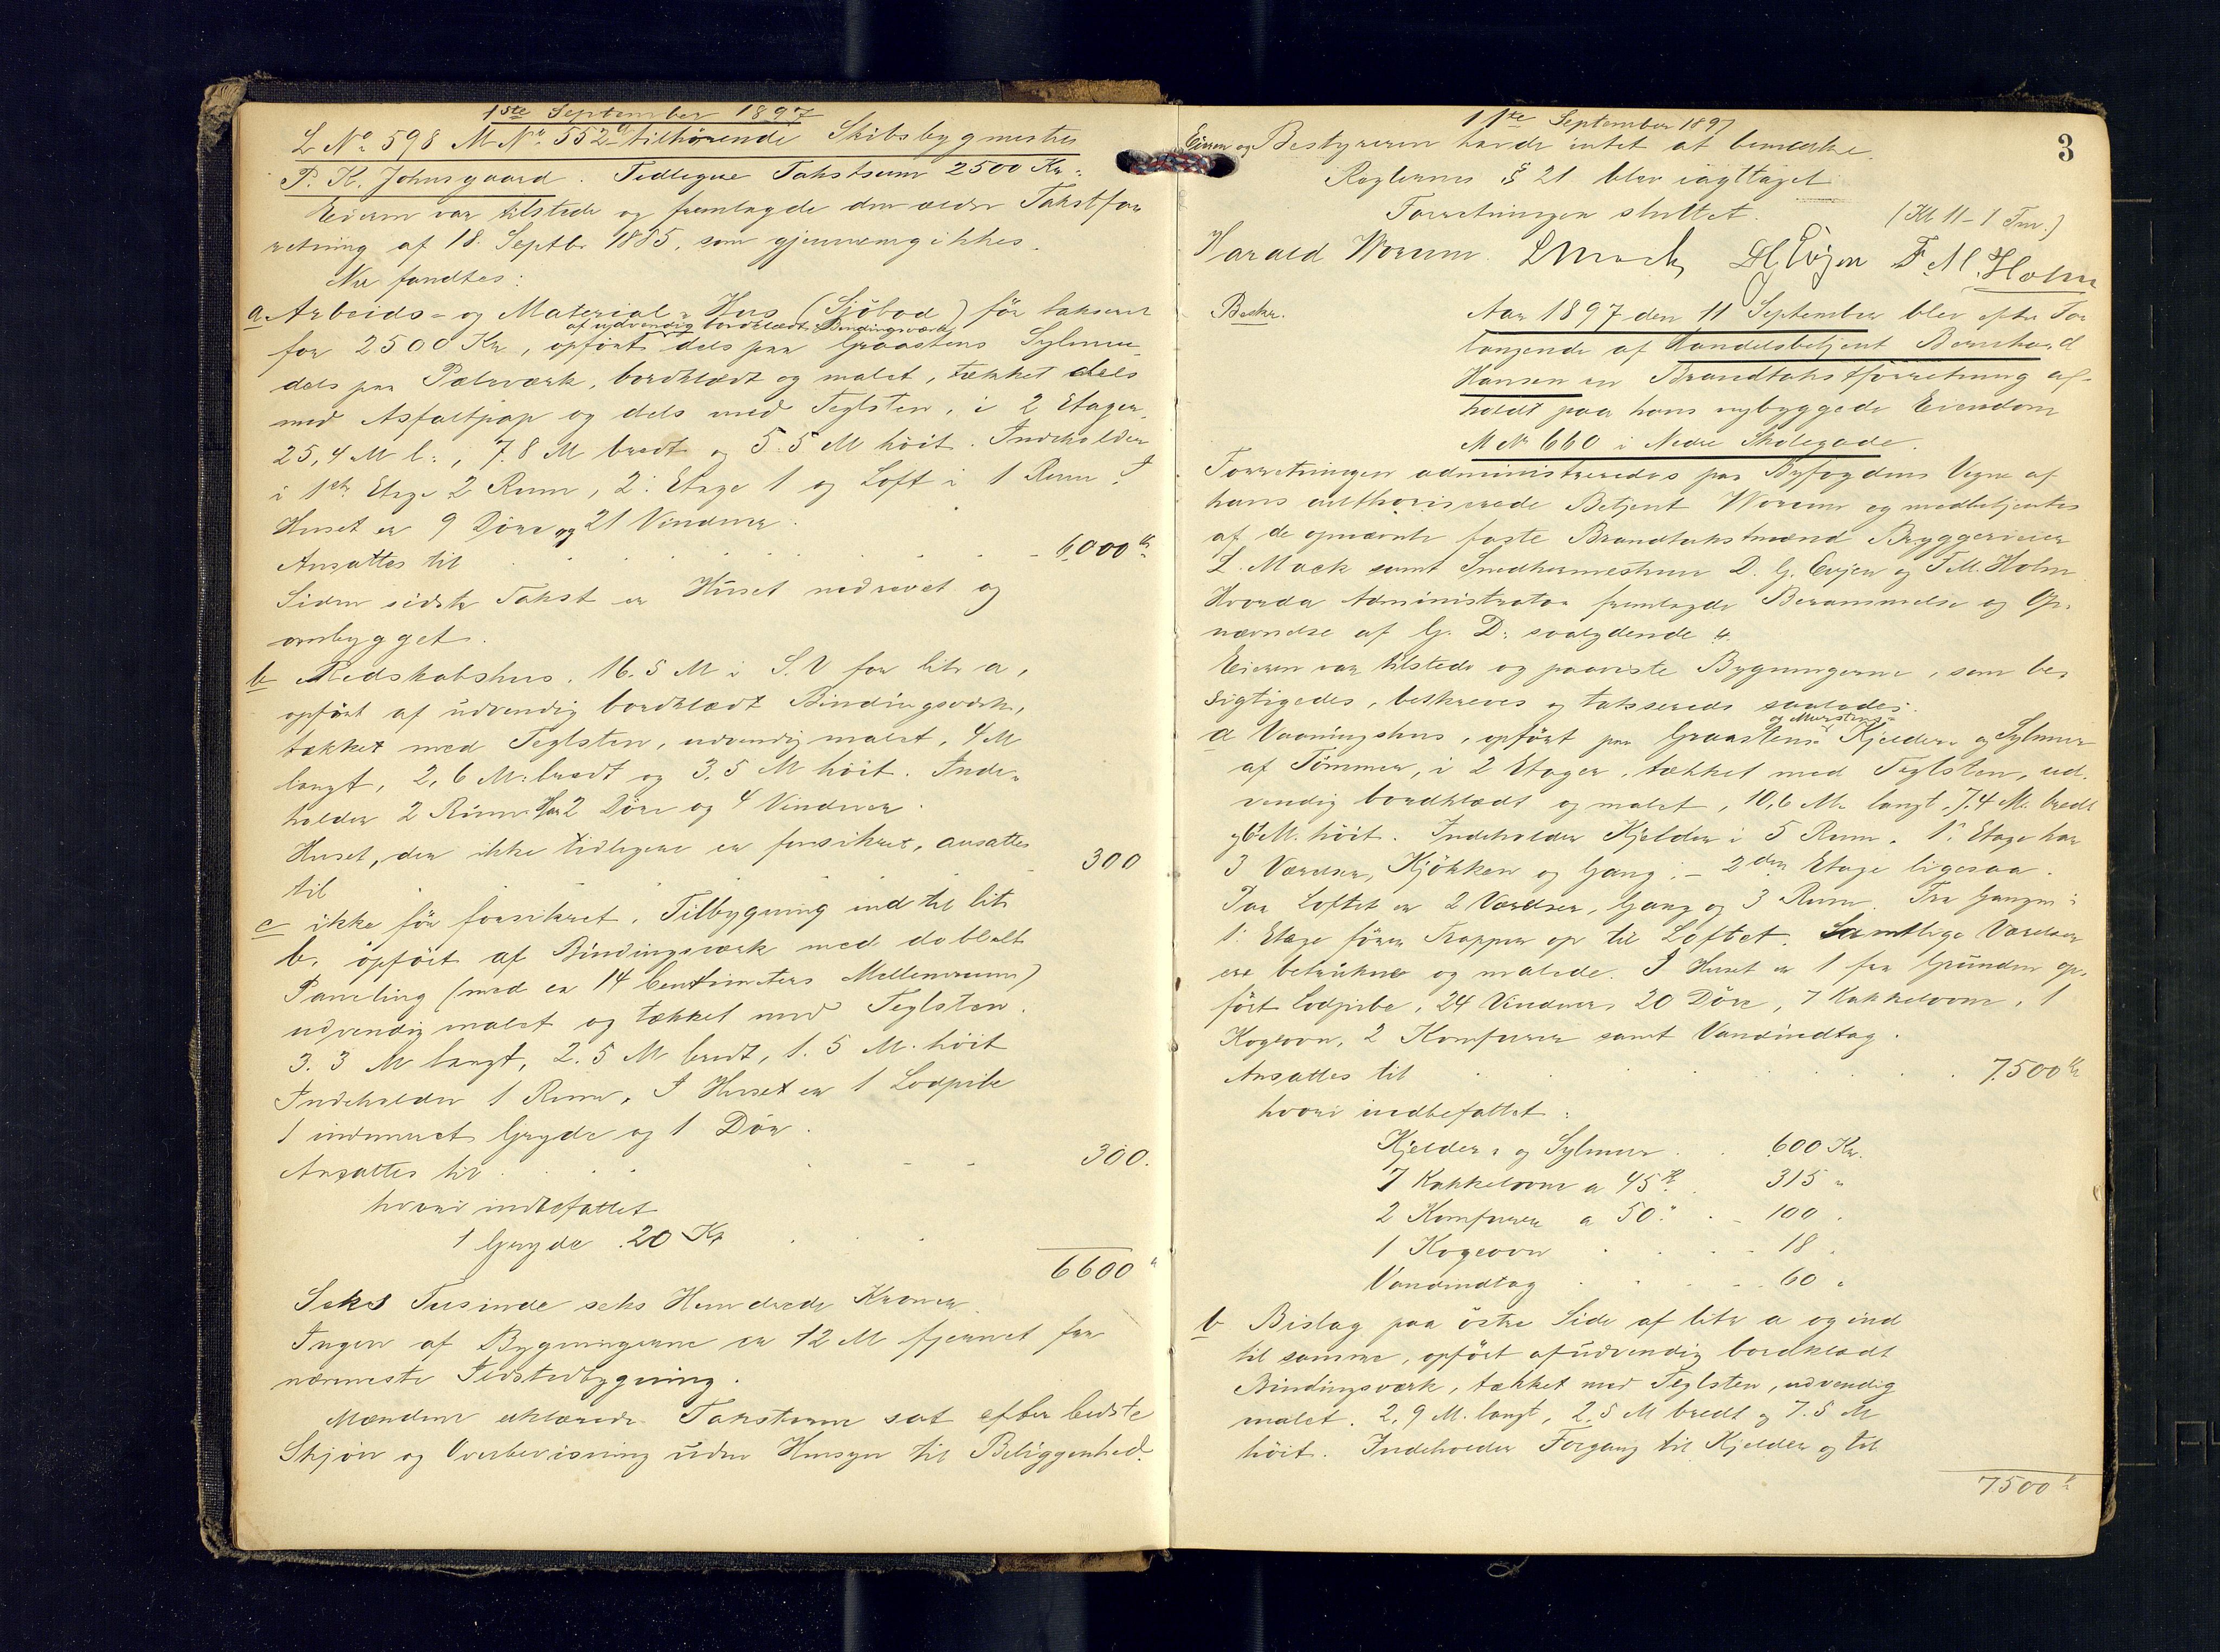 1ste September 1897
L No 598 M No 552a tilhørende Skibsbygmester
P. K. Johnsgaard. Tidligere Takstsum 2500 Kr.
Eieren var tilstede og fremlagde den ældre Takstfor
retning af 18. Septbr 1885, som gjennemgikkes.
Nu fandtes:
a. Arbeids- og Material-Hus (Sjöbod) för takseret
af udvendig bordklædt Bindingsværk
for 2500 Kr, opfört dels paa Graastens Sylmur
dels paa Pæleværk, bordklædt og malet, tækket dels
med Asfaltpap og dels med Teglsten, i 2 Etager,
25,4 M l:, 7.8 M bredt og 5.5 M höit. Indeholder
i 1ste Etage 2 Rum, 2: Etage 1 og Loft i 1 Rum. I
Huset er 9 Döre og 21 Vinduer.
Ansattes til 6000 Kr
Siden sidste Takst er Huset nedrevet og
ombygget.
b Redskabshus. 16.5 M i S.V for litr a,
opfört af udvendig bordklædt Bindingsværk,
tækket med Teglsten, udvendig malet, 4 M
langt, 2,6 M. bredt og 3.5 M höit. Inde-
holder 2 Rum. Har 2 Döre og 4 Vinduer.
Huset, der ikke tidligere er forsikret, ansattes
til 300
c ikke för forsikret. Tilbygning ind til litr
b, opfört af Bindingsværk med dobbelt
Paneling (med ca 14 Centimeters Mellemrum)
udvendig malet og tækket med Teglsten.
3.3 M langt, 2.5 M bredt, 1.5 M. höit
Indeholder 1 Rum. I Huset er 1 Lodpibe
1 indmuret Gryde og 1 Dör.
Ansattes til 300.
hvori indbefattet
1 Gryde 20 Kr
6600 "
Seks Tusinde seks Hundrede Kroner.
Ingen af Bygningerne er 12 M fjernet fra
nærmeste Ildstedbygning.
Mændene erklærede Taksterne sat efter bedste
Skjön og Overbevisning uden Hensyn til Beliggenhed.
11te September 1897
3
Eieren og Bestyreren havde intet at bemærke.
Reglernes § 21 blev iagttaget
Forretningen sluttet. (Kl 11 - 1 Fm.)
Harald Worum L Mack D G Evjen F. M. Holm
Aar 1897 den 11 September blev efter For
langende af Handelsbetjent Bernhard
Hansen en Brandtakstforretning af-
holdt paa hans nybyggede Eiendom
M No 660 i Nedre Skolegade.
Forretningen administreredes paa Byfogdens Vegne af
hans authoriserede Betjent Worum og medbetjentes
af de opnævnte faste Brandtakstmænd Bryggerieier
L. Mack samt Snedkermestrene D. G. Evjen og F.M. Holm
Hvorda Administrator fremlagde Berammelse og Op-
nævnelse af G. D: saalydende 4.
Eieren var tilstede og paaviste Bygningerne, som be-
sigtigedes, beskreves og takseredes saaledes:
og Murstens-
a Vaaningshus, opfört paa Graastens Kjelder og Sylmur
af Tömmer, i 2 Etager, tækket med Teglsten, ud-
vendig bordklædt og malet, 10,6 M. langt, 7,4 M. bredt
og 6 M. höit. Indeholder Kjelder i 5 Rum. 1: Etage har
3 Værelser, Kjökken og Gang; - 2den Etage ligesaa.
Paa Loftet er 2 Værelser, Gang og 3 Rum. Fra Gangen i
1: Etage förer Trapper op til Loftet. Samtlige Værelser
ere betrukne og malede. I Huset er 1 fra Grunden op-
fört Lodpibe, 24 Vinduer, 20 Döre, 7 Kakkelovne, 1
Kogeovn, 2 Komfurer samt Vandindtag.
Ansattes til 7500 Kr
hvori indbefattet:
Kjelder og Sylmur 600 Kr.
7 Kakkelovne a 45 K. 315 "
2 Komfurer a 50 " 100 "
1 Kogeovn 18 "
Vandindtag 60 "
b Bislag paa östre Side af litr a og ind
til samme, opfört af udvendig bordklædt
Bindingsværk, tækket med Teglsten, udvendig
malet. 2,9 M. langt, 2.5 M bredt og 7.5 M
höit. Indeholder Forgang til Kjelder og til
7500